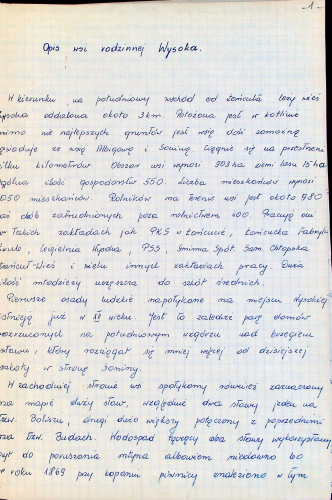 -1-
Opis wsi rodzinnej Wysoka.
W kierunku na południowy wschód od Łańcuta leży wieś
Wysoka oddalona około 3km. Położona jest w kotlinie
mimo nie najlepszych gruntów jest wsią dość zamożną
ze wsią Albigową i Soniną. Ciągnie się na przestrzeni
kilku kilometrów. Obszar wsi wynosi 903 ha ziemi lasu 15 ha
ogólna ilość gospodarstw 550. Liczba mieszkańców wynosi
050 mieszkańców. Rolników na terenie wsi jest około 980
osób zatrudnionych poza rolnictwem 400. Pracują oni
w takich zakładach jak PKS w Łańcucie, Łańcucka Fabryka
Śrub, Cegielnia Wysoka, PSS, Gminna Spół. Sam. Chłopska
Łańcut-Wieś i wielu innych zakładach pracy. Duża
ilość młodzieży uczęszcza do szkół średnich.
Pierwsze osady ludzkie napotykane na miejscu Wysokiej
istnieją już w XV wieku. Jest to zaledwie parę domów
rozrzuconych na południowym wzgórzu nad brzegiem
stawu, który rozciągał się mniej więcej od dzisiejszej
szkoły w stronę Soniny.
W zachodniej stronie wsi spotykamy również zaznaczony
na mapie duży staw, względnie dwa stawy jeden na
tzw. Boliszu, drugi dużo większy połączony z poprzednim
na tzw. Budach. Wodospad łączący oba stawy wykorzystany
był do poruszania młyna albowiem niedawno bo
w roku 1869 przy kopaniu piwnicy znaleziono w tym